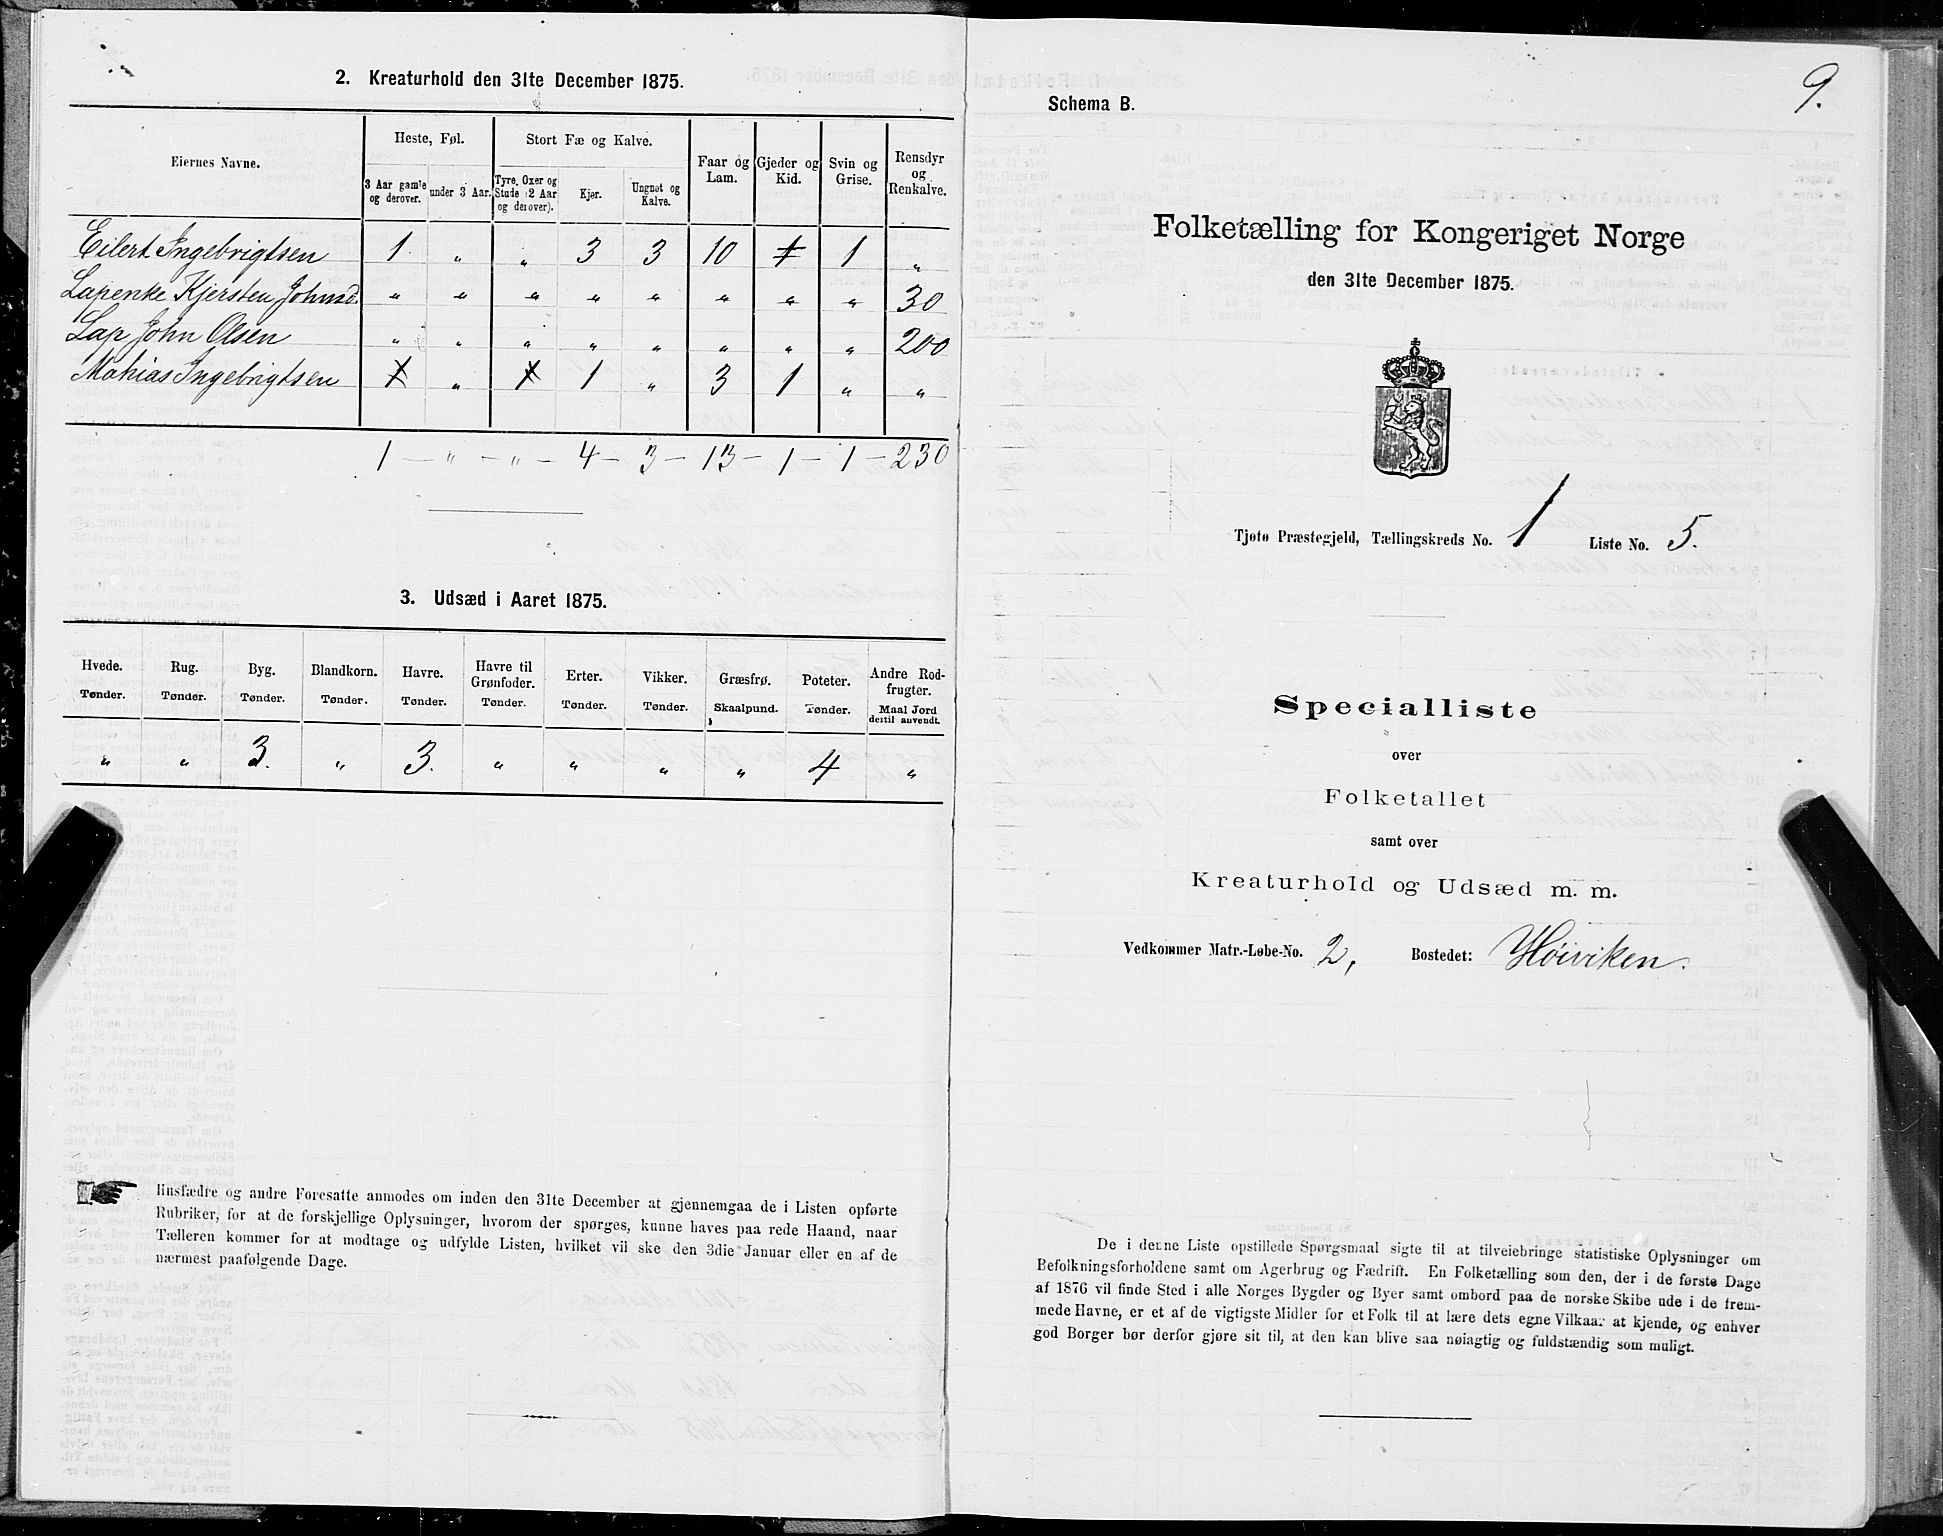 2. Kreaturhold den 31te December 1875.
Eiernes Navne.
Heste, Føl.
Stort Fæ og Kalve.
Faar og Lam.
Gjeder og Kid.
Svin og Grise.
Rensdyr og Renkalve.
3 Aar gamle og derover.
under 3 Aar.
Tyre, Oxer og Stude (2 Aar og derover).
Kjør.
Ungnøt og Kalve.
Eilert Ingebrigtsen 1 „ „ 3 3 10 1 1 „
Lapenke Kjersten Johnsd „ „ „ „ „ „ „ „ 30
Lap John Olsen „ „ „ „ „ „ „ „ 200
Mathias Ingebrigtsen 1 „ 1 1 „ 3 1 „ „
1 – „ – „ – 4 – 3 – 13 – 1 – 1 – 230
3. Udsæd i Aaret 1875.
Hvede. Rug. Byg. Blandkorn. Havre. Havre til Grønfoder. Erter. Vikker. Græsfrø. Poteter. Andre Rodfrugter.
Tønder. Tønder. Tønder. Tønder. Tønder. Tønder. Tønder. Tønder. Skaalpund. Tønder. Maal Jord dertil anvendt.
„ „ 3. „ 3. „ „ „ „ 4 „
Husfædre og andre Foresatte anmodes om inden den 31te December at gjennemgaa de i Listen opførte
Rubriker, for at de forskjellige Oplysninger, hvorom der spørges, kunne haves paa rede Haand, naar
Tælleren kommer for at modtage og udfylde Listen, hvilket vil ske den 3die Januar eller en af de
nærmest paafølgende Dage.
9.
Schema B.
Folketælling for Kongeriget Norge
den 31te December 1875.
Tjøtø Præstegjeld, Tællingskreds No. 1 Liste No. 5.
Specialliste
over
Folketallet
samt over
Kreaturhold og Udsæd m. m.
Vedkommer Matr.-Løbe-No. 2, Bostedet: Høiviken.
De i denne Liste opstillede Spørgsmaal sigte til at tilveiebringe statistiske Oplysninger om
Befolkningsforholdene samt om Agerbrug og Fædrift. En Folketælling som den, der i de første Dage
af 1876 vil finde Sted i alle Norges Bygder og Byer samt ombord paa de norske Skibe ude i de frem-
mede Havne, er et af de vigtigste Midler for et Folk til at lære dets egne Vilkaar at kjende, og enhver
god Borger bør derfor gjøre sit til, at den kan blive saa nøiagtig og fuldstændig som muligt.